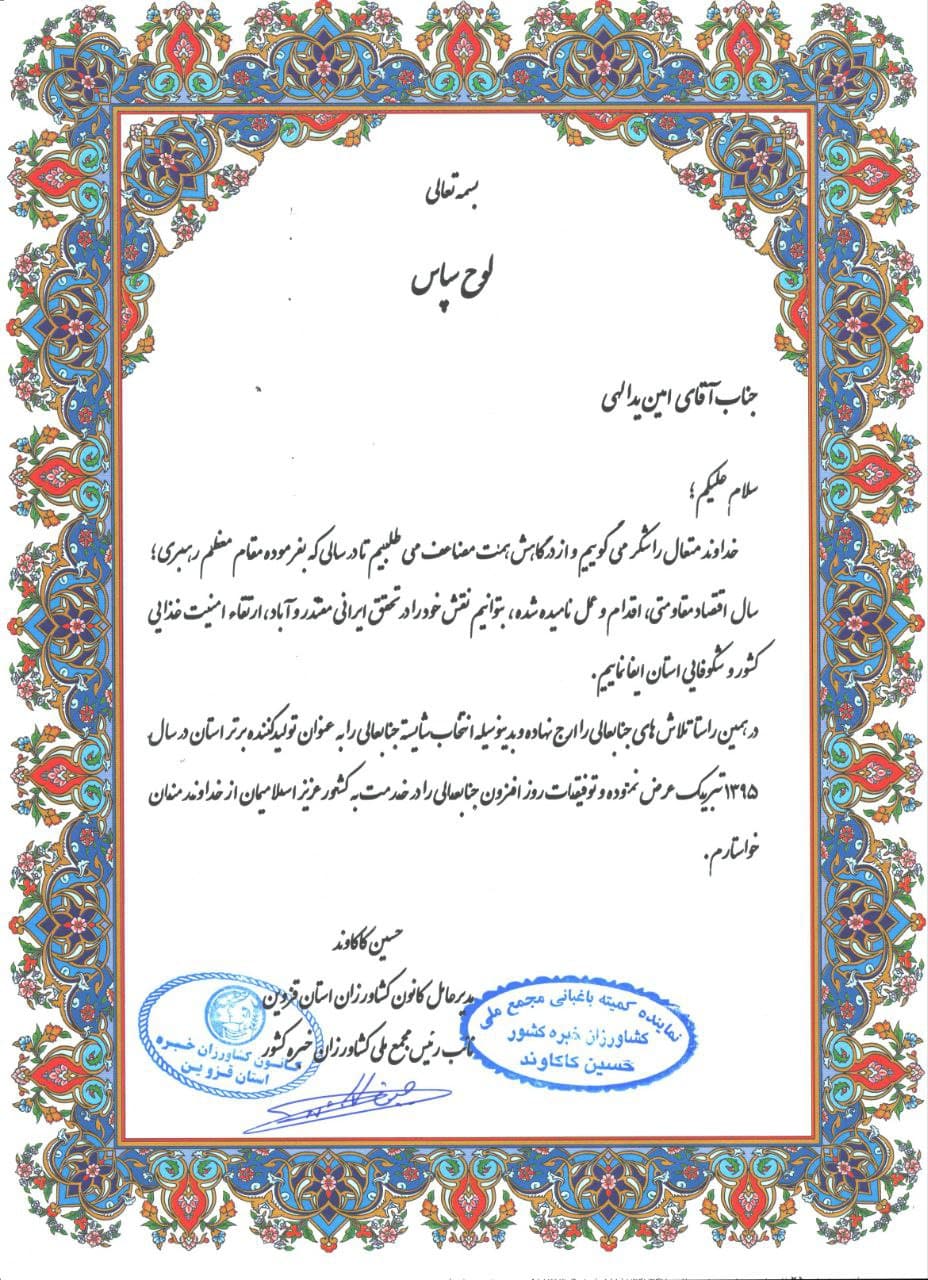 بسمه تعالی
لوح سپاس
جناب آقای امین یدالهی
سلام علیکم؛
خداوند متعال را شکر می گوییم و از درگاهش همت مضاعف می طلبیم تا در سالی که بفرموده مقام معظم رهبری؛
سال اقتصاد مقاومتی، اقدام و عمل نامیده شده، بتوانیم نقش خود را در تحقق ایرانی مقتدر و آباد، ارتقاء امنیت غذایی
کشور و شکوفایی استان ایفا نماییم.
در همین راستا تلاش های جنابعالی را ارج نهاده و بدینوسیله انتخاب شایسته جنابعالی را به عنوان تولیدکننده برتر استان در سال
۱۳۹۵ تبریک عرض نموده و توفیقات روز افزون جنابعالی را در خدمت به کشور عزیز اسلامیمان از خداوند منان
خواستارم.
حسین کاکاوند
مدیرعامل کانون کشاورزان استان قزوین
نائب رئیس مجمع ملی کشاورزان خبره کشور
نماینده کمیته باغبانی مجمع ملی
کشاورزان خبره کشور
حسین کاکاوند
کانون کشاورزان خبره
استان قزوین